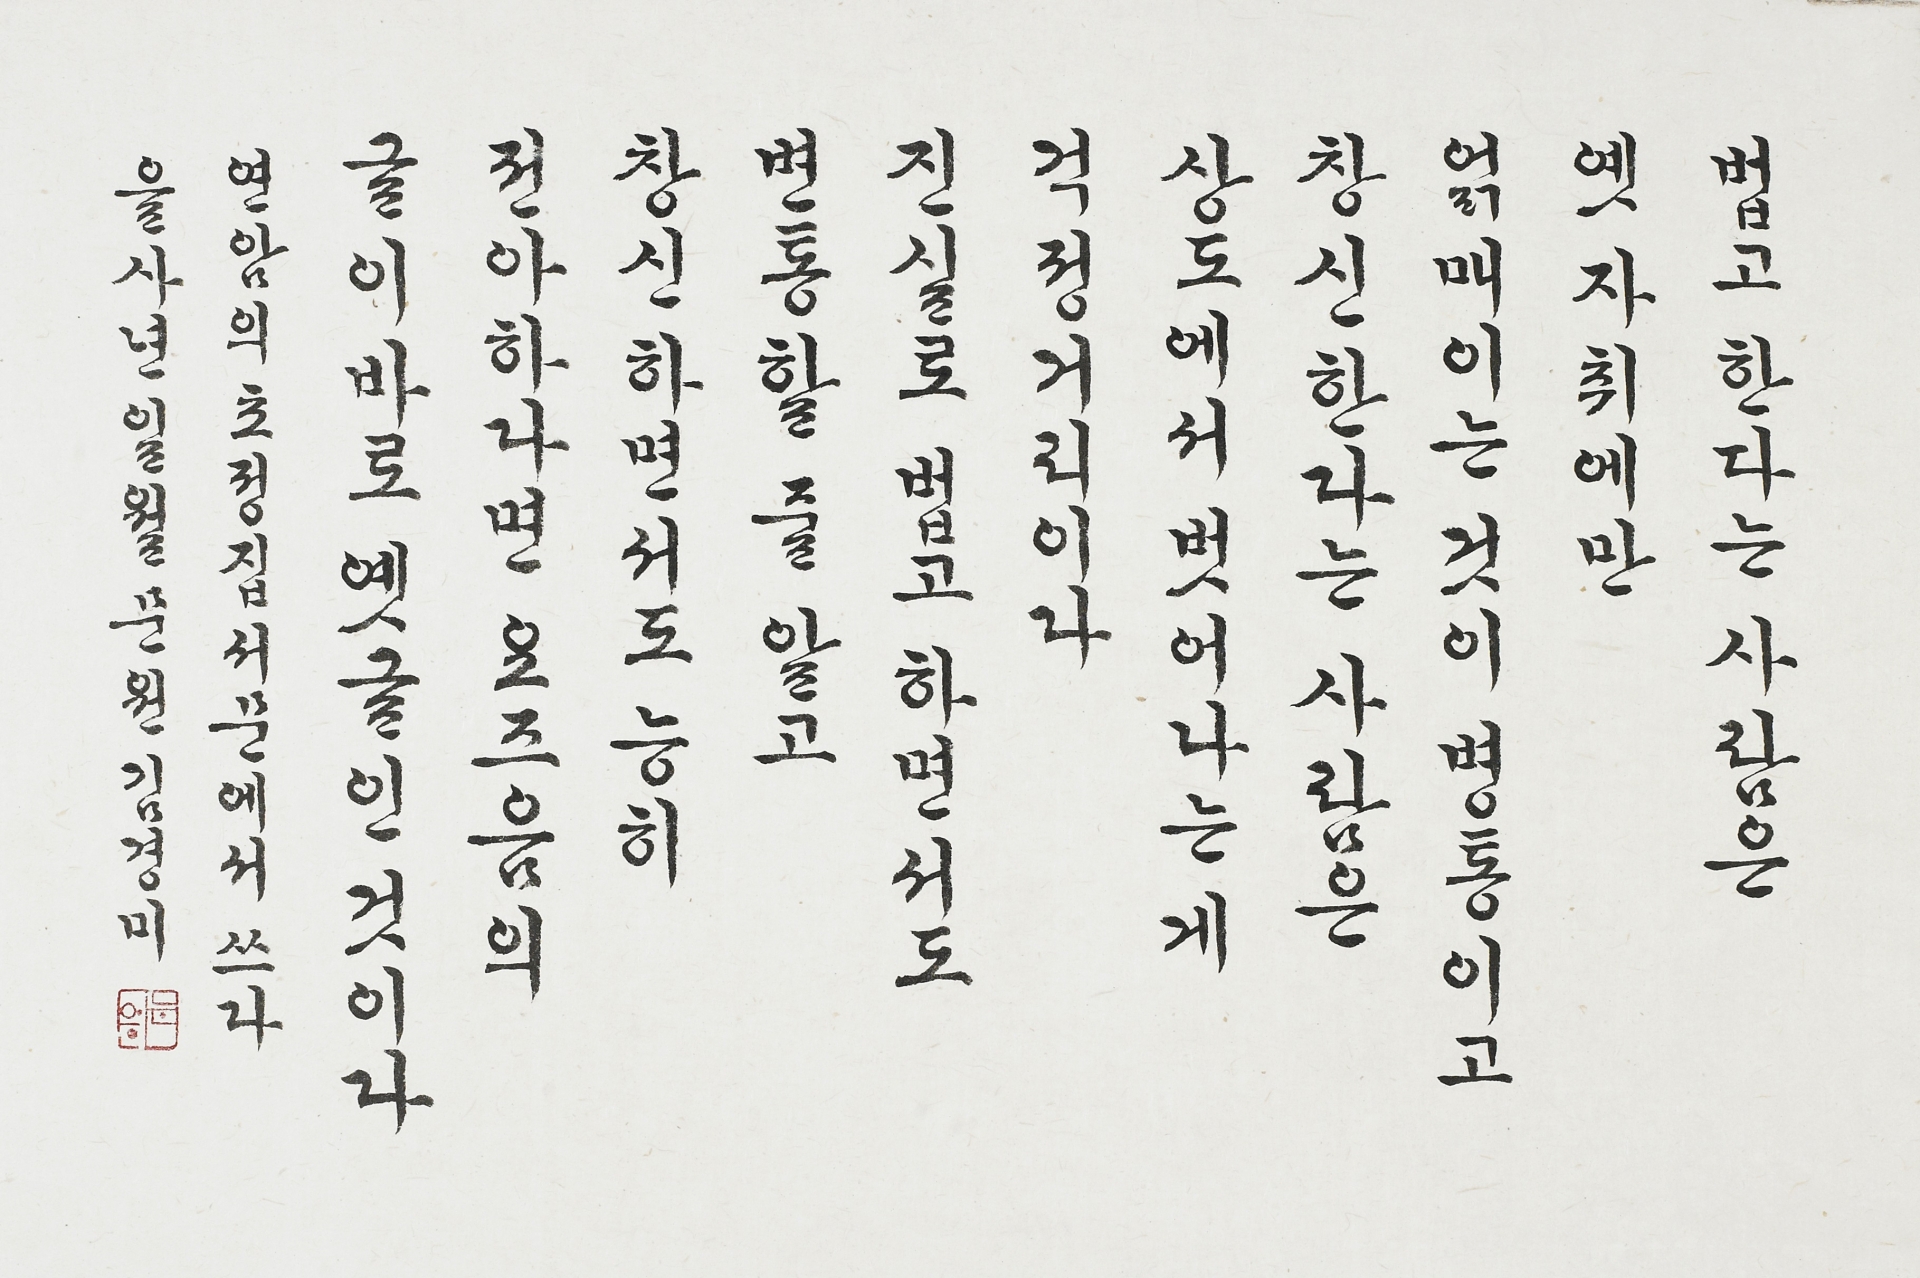 법고 한다는 사람은
옛 자취에만
얽매이는 것이 병통이고
창신한다는 사람은
상도에서 벗어나는게
걱정거리이라
진실로 법고 하면서도
변통할 줄 알고
창신하면서도 능히
전아하다면 요즈음의
글이 바로 옛글인 것이라
연암의 초정집서문에서 쓰다
을사년 일월 문원 김경미
문원